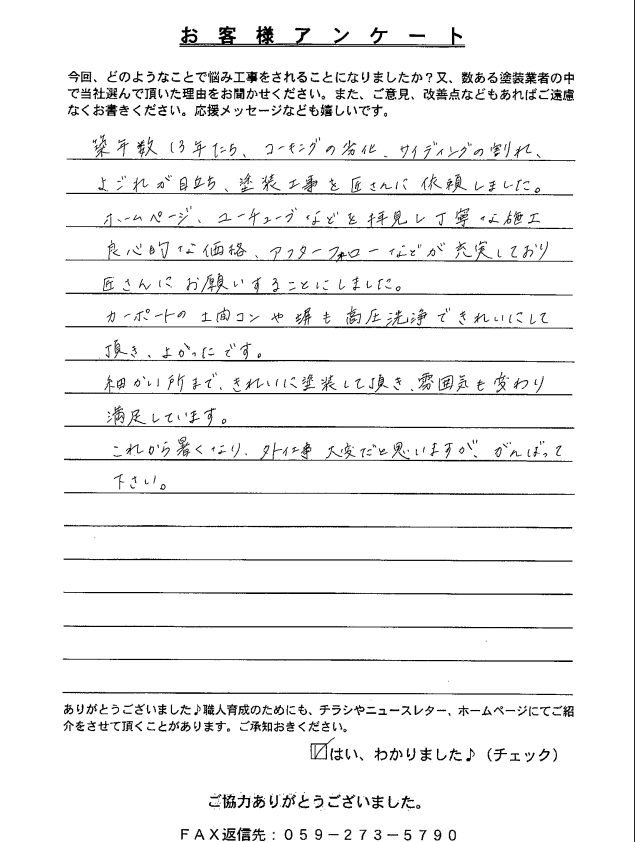 お客様アンケート
今回、どのようなことで悩み工事をされることになりましたか？又、数ある塗装業者の中
で当社選んで頂いた理由をお聞かせください。また、ご意見、改善点などもあればご遠慮
なくお書きください。応援メッセージなども嬉しいです。
築年数13年たち、コーキングの劣化、サイディングの割れ、
よごれが目立ち、塗装工事を匠さんに依頼しました。
ホームページ、ユーチューブなどを拝見し丁寧な施工
良心的な価格、アフターフォローなどが充実しており
匠さんにお願いすることにしました。
カーポートの土間コンや塀も高圧洗浄できれいにして
頂き、よかったです。
細かい所まで、きれいに塗装して頂き、雰囲気も変わり
満足しています。
これから暑くなり、外仕事大変だと思いますが、がんばって
下さい。
ありがとうございました♪職人育成のためにも、チラシやニュースレター、ホームページにてご紹
介をさせて頂くことがあります。ご承知おきください。
☑はい、わかりました♪（チェック）
ご協力ありがとうございました。
ＦＡＸ返信先：０５９－２７３－５７９０